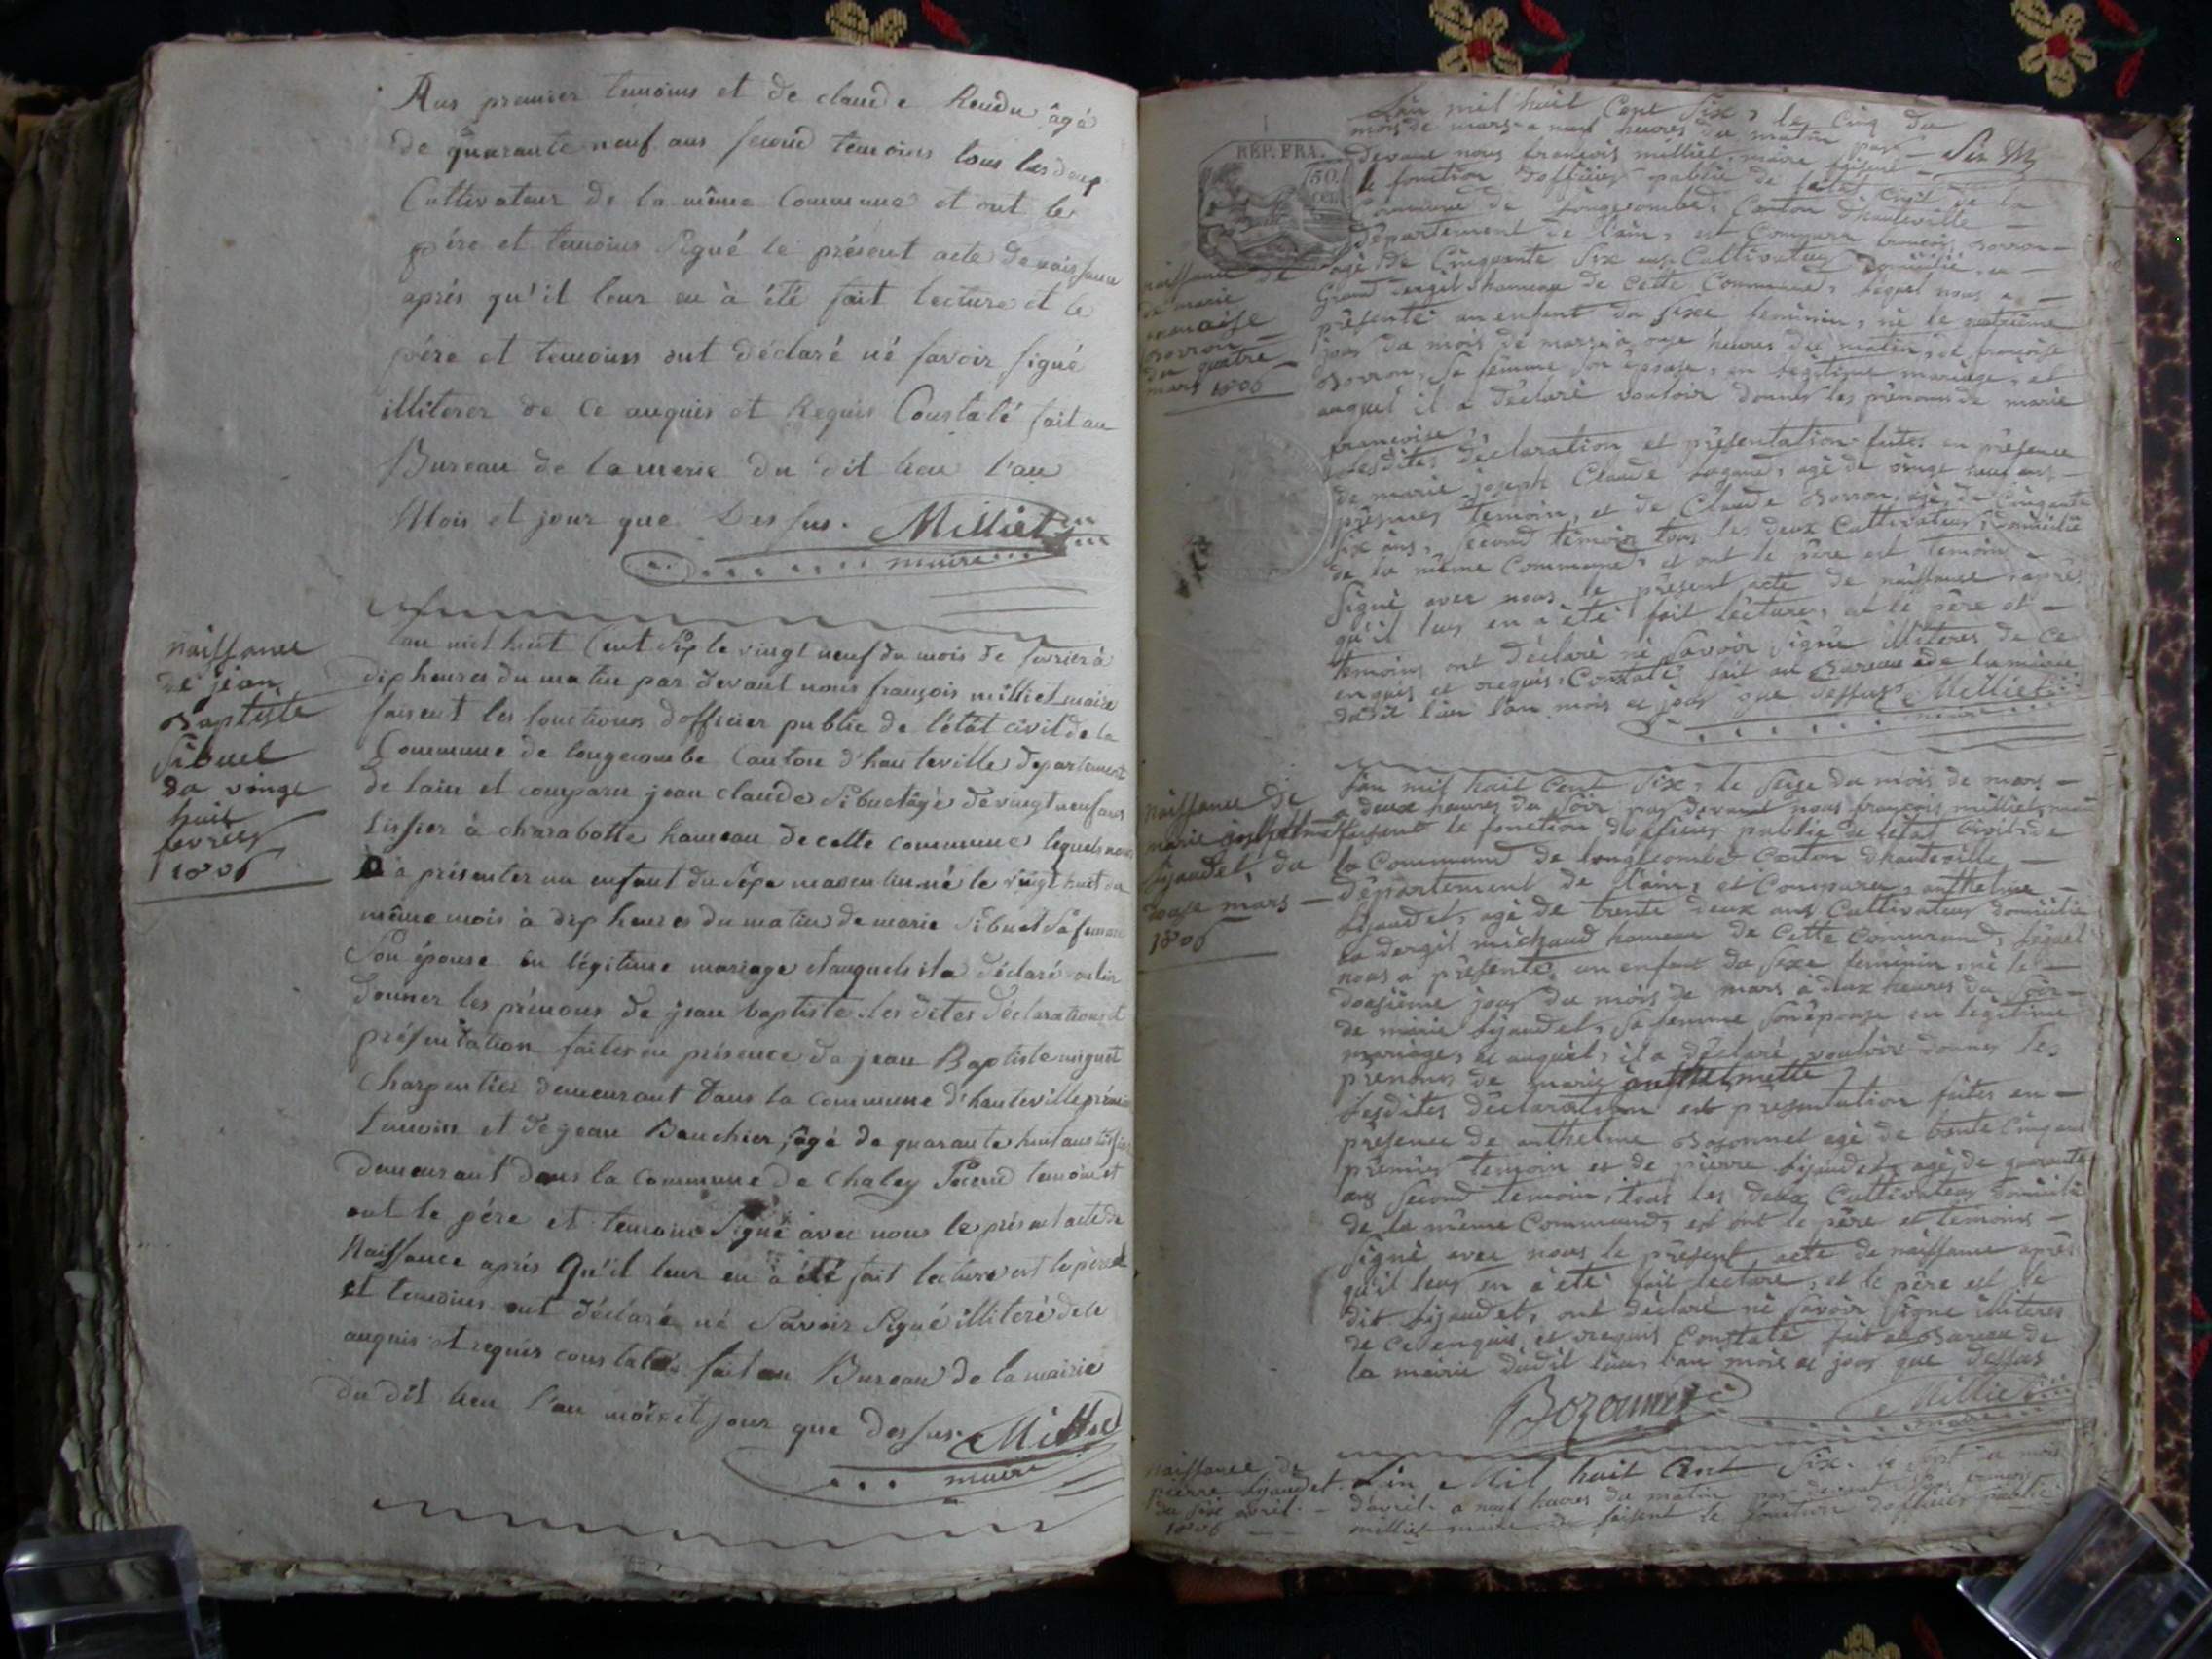 Ans premier temoins et de claude Rendu âgé
de quarante neuf ans second temoins tous les deux
Cultivateur de la même commune et ont le
père et temoins signé le présent acte de naissance
après qu'il leur en à été fait lecture et le
père et temoins ont déclaré né savoir signé
illiterer de ce anquis et Requis Constaté fait au
Bureau de la merie du dit lieu l'an
Mois et jour que Dessus. Milliet
maire
naissance
de jean
Baptiste
Sibuet
du vingt
huit
fevrier
1806
l'an mil huit Cent Six le vingt neuf du mois de fevrier à
dix heures du matin par devant nous françois milliet maire
faisent les fonctions d'officier public de l'état civil de la
Commune de longecombe Canton d'hauteville departement
de lain et comparu jean claude Sibuet âgé de vingt neuf ans
tissier à charabotte hameau de cette commune lequels nous
à présenter un enfant du Sexe masculin né le vingt huit du
même mois à dix heures du matin de marie Sibuet Sa femme
Son épouse en légitime mariage et auquels il a déclaré vouloir
donner les prénoms de jean baptiste les dites déclarations et
présentation faites en présence de jean Baptiste miguet
Charpentier demeurant Dans la commune d'hauteville prémier
temoin et de jean Bauchier, âgé de quarante huit ans tissier
demeurant dans la commune de Chaley Second temoin et
ont le père et temoins Signé avec nous le présent acte de
Naissance après Qu'il leur en à été fait lecture et le père
et temoins ont déclaré né Savoir Signé illiteré de ce
anquis et requis constaté fait au Bureau de la mairie
du dit lieu l'an mois et jour que dessus. Milliet
maire
RÉP. FRA.
50
CEN.
Six
naissance de
de marie
francoise
Borron
du quatre
mars 1806
L'an mil huit Cent Six, le Cinq du
mois de mars a neuf heures du matin par
devant nous francois milliet, maire faisent
le fonction d'officier public de l'état civil de la
Commune de longecombe, Canton d'hauteville
département de l'ain, est Comparu francois Borron
agé de Cinquente Six ans Cultivateur domicilié a
Grand dergit hameau de Cette Commune, lequel nous a
présenté un enfant du Sexe feminin, né le quatrième
jour du mois de mars à onze heures du matin, de francoise
Borron, Sa femme Son épouse, en légitime mariage, et
auquel il a déclaré vouloir donner les prénoms de marie
francoise,
Lesdites déclaration et présentation faites en présence
de marie joseph Claude agé de vingt neuf ans
prémier temoin, et de Claude Borron, agé de Cinquante
Six ans, Second temoin tous les deux Cultivateur domicilié
de la même Commune, et ont le père est temoins
Signé avec nous le présent acte de naissance après
qu'il leur en à été fait lecture, et le père et
temoins ont déclaré né Savoir Signé illiteres de ce
enquis et requis, Constaté fait au Bureau de la mairie
dudit lieu l'an mois et jour que dessus. Milliet
maire
naissance de
marie anthelmette
bijaudet, du
douze mars
1806
L'an mil huit Cent Six, le Seize du mois de mars
a deux heures du Soir par devant nous françois milliet, maire
faisent le fonction d'officier public de l'état Civil de
la Commune de longecombe Canton d'hauteville
département de l'ain, et Comparu, anthelme
bijaudet, agé de trente deux ans Cultivateur domicilié
a dergit michaud hameau de Cette Commune, lequel
nous a présenté un enfant du Sexe feminin, né le
douzième jour du mois de mars à deux heures du Soir
de marie bijaudet, Sa femme Son épouse en légitime
mariage, et auquel, il a déclaré vouloir donner les
prénoms de marie anthelmette,
Lesdites déclaration est presentation faites en
présence de anthelme Bosonnet agé de trente Cinq ans
premier temoin et de pierre bijaudet agé de quarante
ans Second temoin, tous les deux Cultivateur domicilié
de la même Commune, est ont le père et temoins
Signé avec nous le présent acte de naissance après
qu'il leur en à été fait lecture, et le père est le
dit bijaudet, ont déclaré né Savoir Signé illiteres
de ce enquis et requis Constaté fait au Bureau de
la mairie dudit lieu l'an mois et jour que dessus
Bozonnet Milliet
maire
Naissance de
pierre bijaudet
du Six avril
1806
L'an Mil huit Cent Six. le Sept du mois
d'avril. a neuf heures du matin par devant nous francois
milliet maire faisent le fonction d'officier public